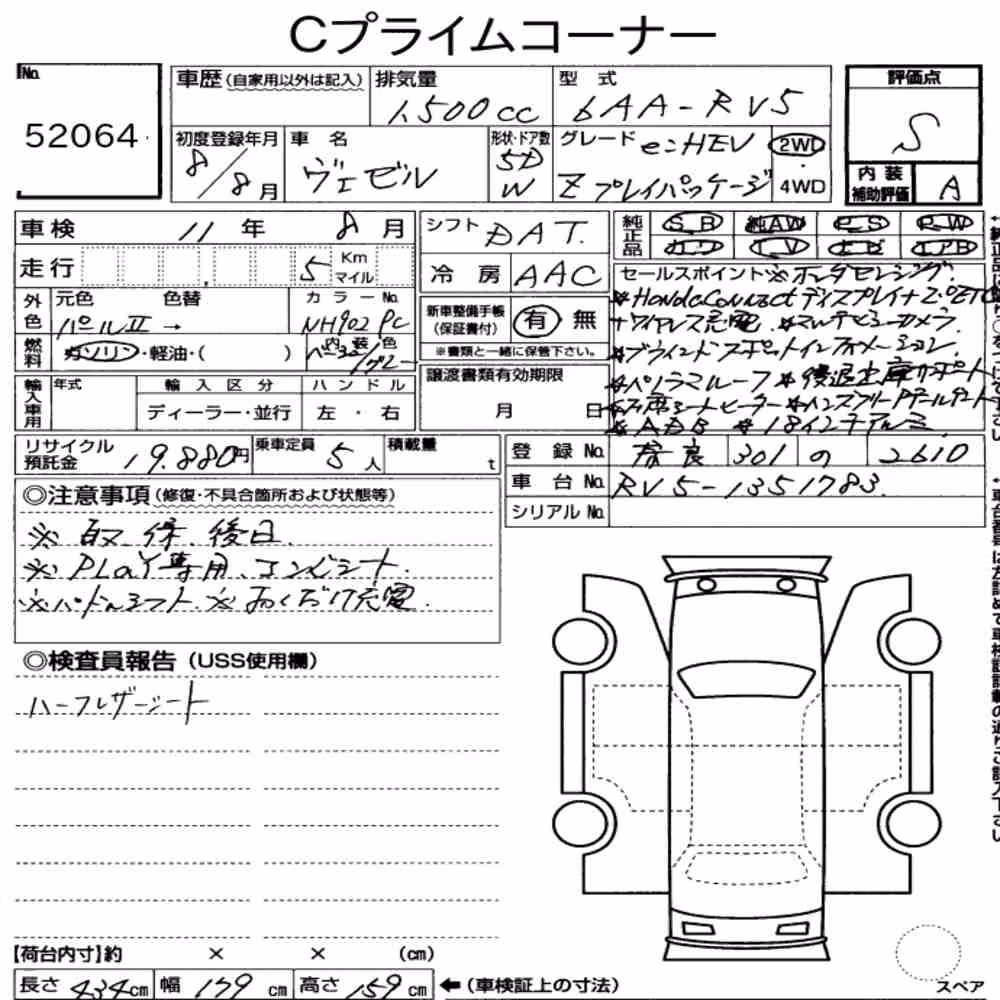 Cプライムコーナー
No.
52064
車歴 (自家用以外は記入)
排気量
1,500cc
型 式
6AA-RV5
評価点
S
初度登録年月
8/8月
車 名
ヴェゼル
形状・ドア数
5D
W
グレード e:HEV
Z プレイパッケージ
2WD
・
4WD
内 装
補助評価
A
車検 11 年 8 月
シフト DAT.
純正品
S.R 純AW P.S P.W
カワ T.V ナビ エアB
走行 5 Km
マイル
冷 房 AAC
セールスポイント ※ホンダセンシング
※HondaConnectディスプレイ+2.0ETC
+ワイヤレス充電 ※マルチビューカメラ
※ブラインドスポットインフォメーション
※パノラマルーフ ※後退出庫サポート
※前席シートヒーター ※ハンズフリーPテールゲート
※ADB ※18インチアルミ
外色
元色 パールⅡ →
色替
カラーNo.
NH902 PC
新車整備手帳
(保証書付)
有 無
※書類と一緒に保管下さい。
燃料
ガソリン・軽油・( )
内 装 色
グレー
譲渡書類有効期限
月 日
輸入車用
年式
輸 入 区 分
ディーラー・並行
ハ ン ド ル
左 ・ 右
リサイクル
預託金
19.880円
乗車定員 5人
積載量 t
登 録 No. 奈良 301 の 2610
車 台 No. RV5-1351783
シリアル No.
◎注意事項 (修復・不具合箇所および状態等)
※ 取.保.後日
※ PLaY専用.コンビシート.
※パドルシフト.※おくだけ充電.
◎検査員報告 (USS使用欄)
ハーフレザーシート
【荷台内寸】約 × × (cm)
長さ 434cm 幅 179 cm 高さ 159 cm
←(車検証上の寸法)
スペア